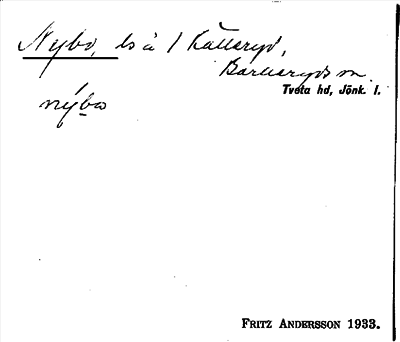 Nybo, ls å 1 Källeryd,
Barkeryds sn.
Tveta hd, Jönk. l.
nýbo
FRITZ ANDERSSON 1933.